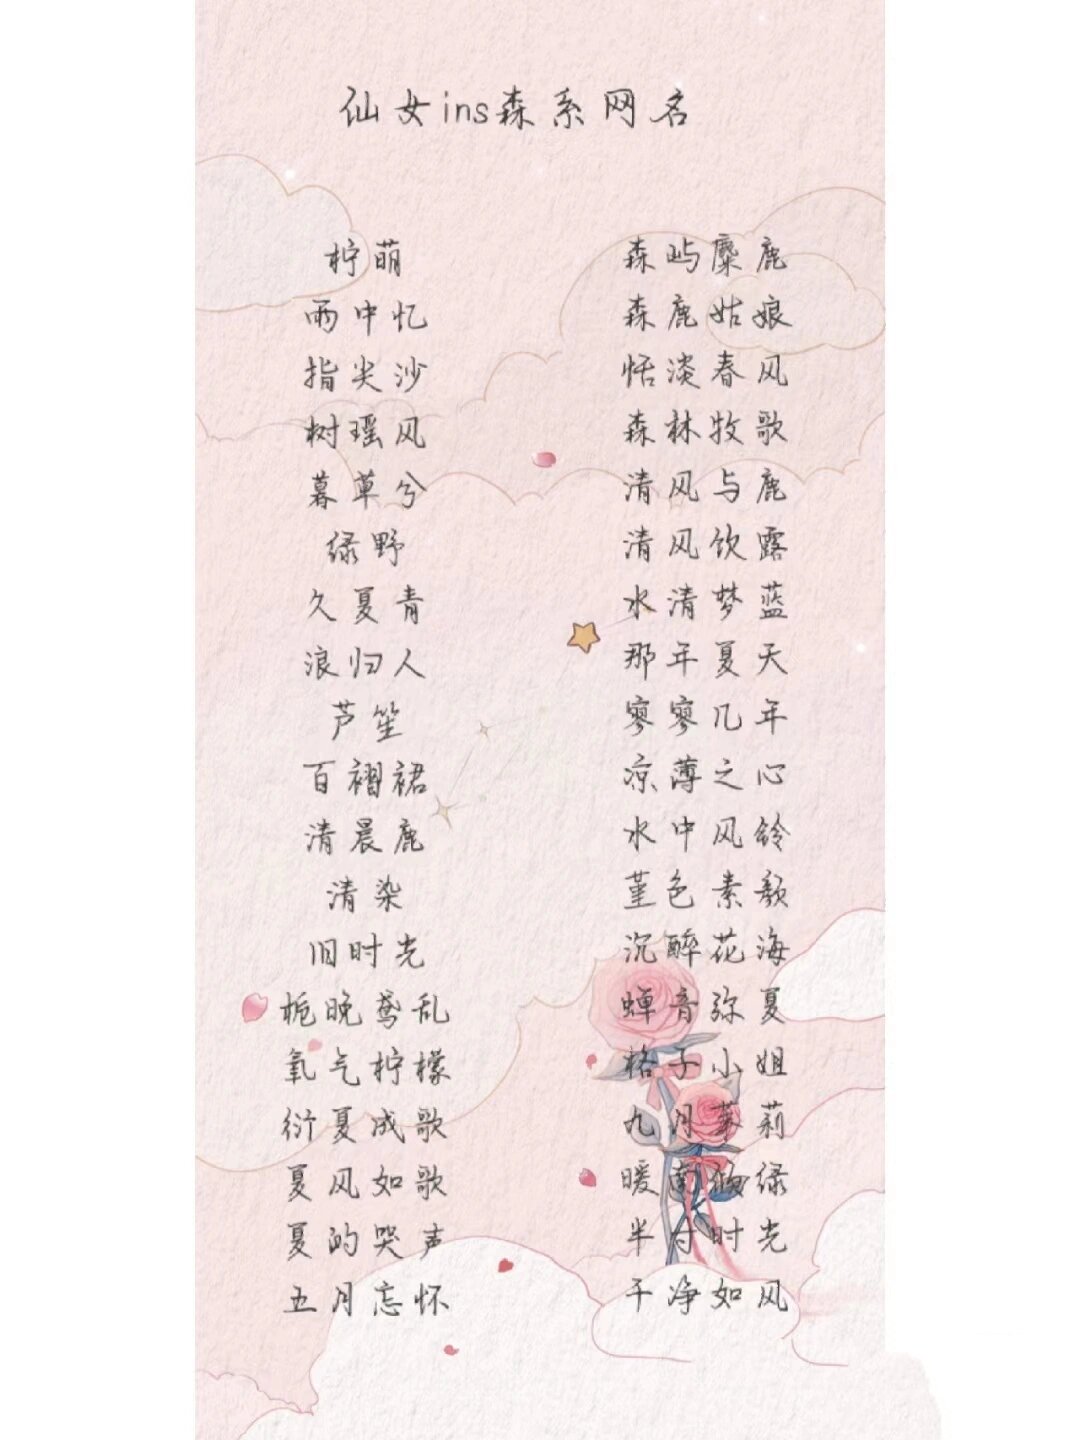 仙女ins森系网名
柠萌
雨中忆
指尖沙
树瑶风
暮草兮
绿野
久夏青
浪归人
芦笙
百褶裙
清晨鹿
清染
旧时光
栀晚鸢乱
氧气柠檬
衍夏成歌
夏风如歌
夏的哭声
五月忘怀
森屿麋鹿
森鹿姑娘
恬淡春风
森林牧歌
清风与鹿
清风饮露
水清梦蓝
那年夏天
寥寥几年
凉薄之心
水中风铃
堇色素颜
沉醉花海
蝉音弥夏
格子小姐
九月茉莉
暖南倾绿
半寸时光
干净如风